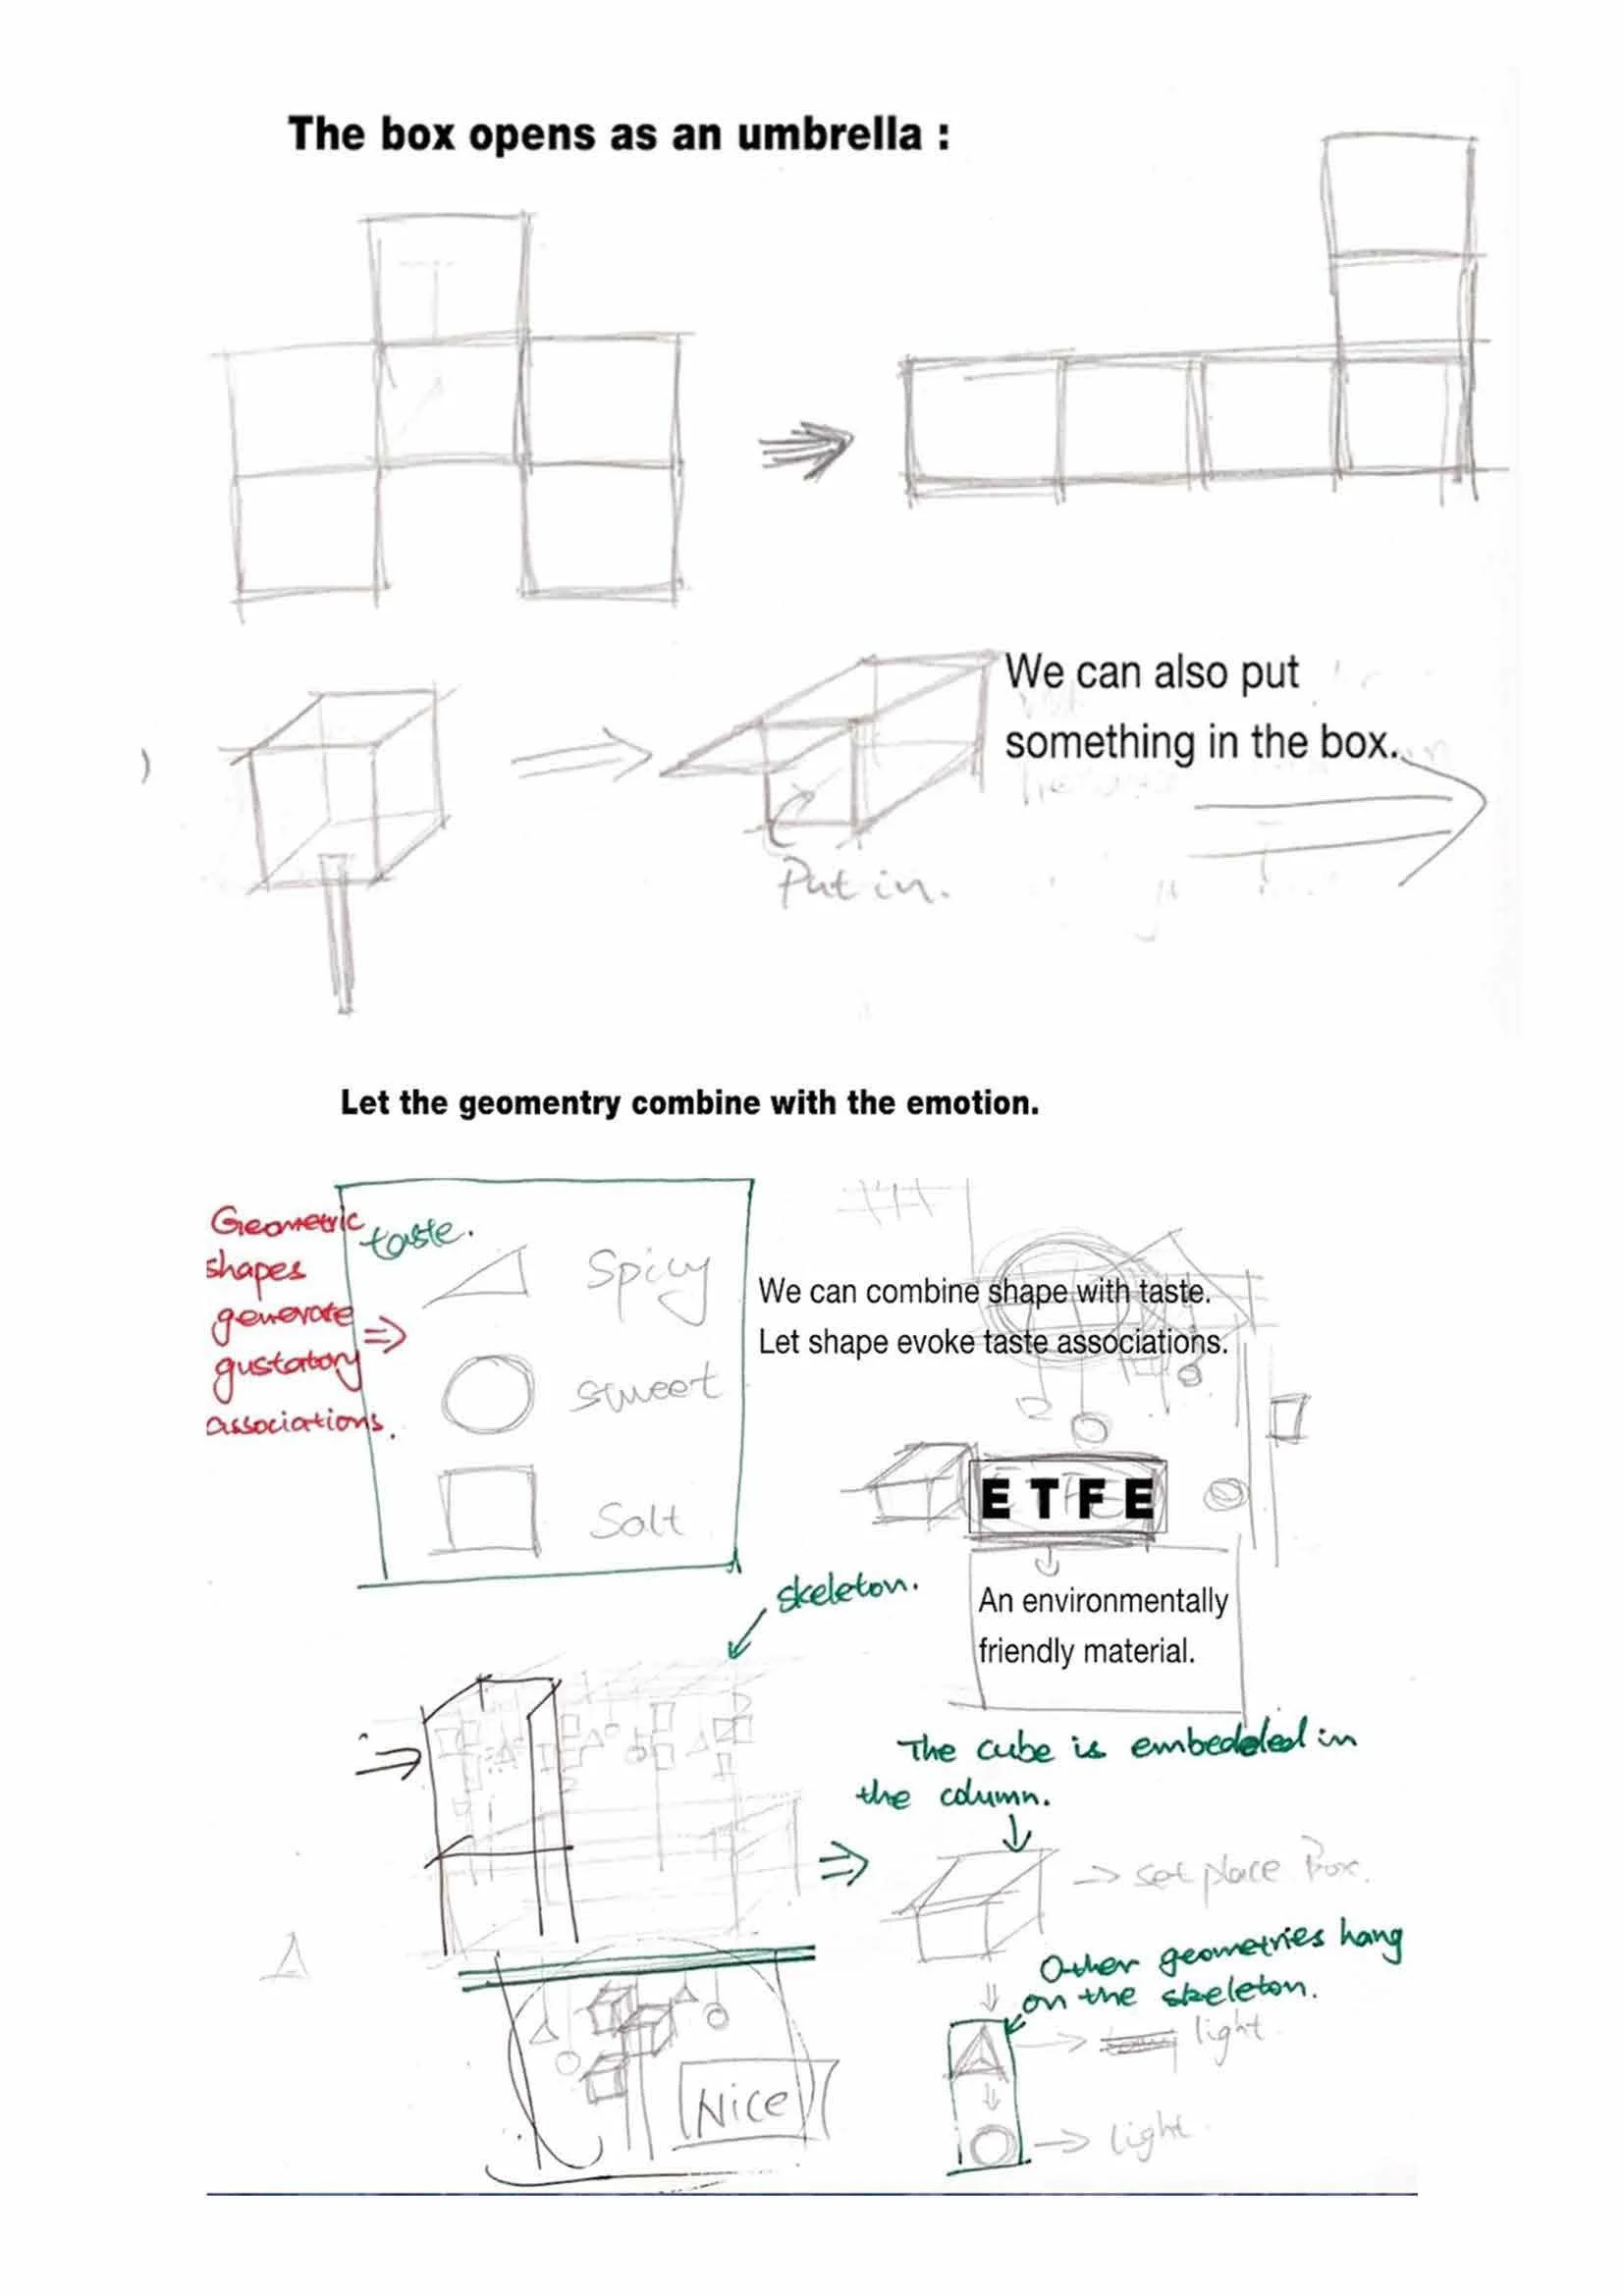 The box opens as an umbrella :
We can also put
something in the box.
Put in.
Let the geomentry combine with the emotion.
Geometric
shapes
generate
gustatory
associations.
taste.
Spicy
sweet
Salt
We can combine shape with taste.
Let shape evoke taste associations.
ETFE
An environmentally
friendly material.
skeleton.
The cube is embedded in
the column.
set place Box.
Other geometries hang
on the skeleton.
light
light
Nice